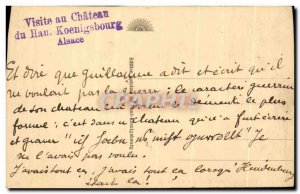 Visite au Château
du Hau. Koenigsbourg
Alsace
Et dire que Guillaume a dit et écrit qu'il
ne voulait pas la guerre! le caractère guerrier
de son chateau donne le démenti le plus
formel: c'est dans ce chateau qu'il a fait écrire
et graver "ich habe es nicht gewollt" Je
ne l'avais pas voulu.
J'avais tout ça, j'avais tout ça lorsque Hindenburg
était là!